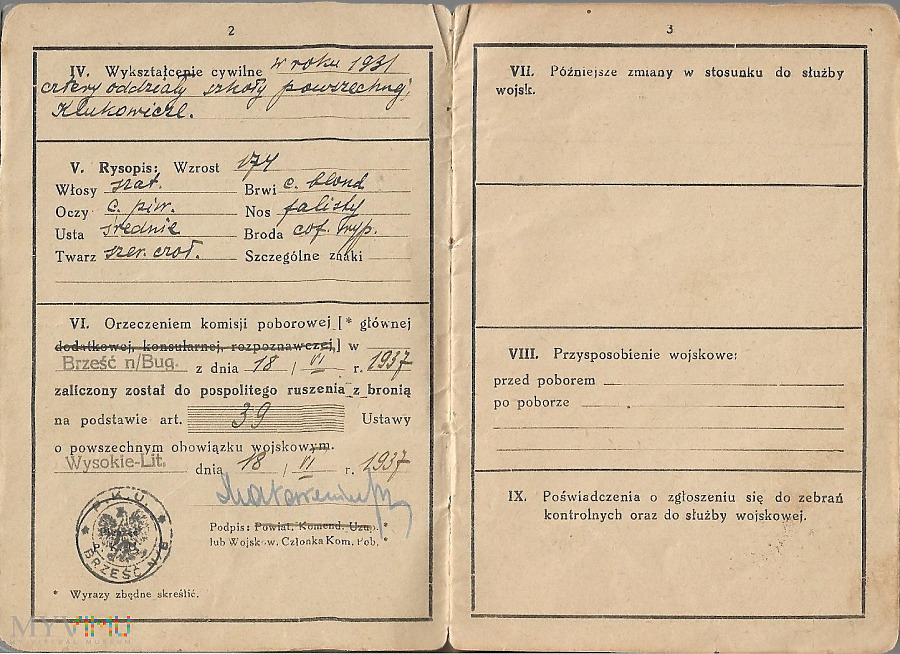 2
IV. Wykształcenie cywilne w roku 1931
cztery oddziały szkoły powszechnej,
Klukowicze.
V. Rysopis: Wzrost 174
Włosy szat. Brwi c. blond
Oczy c. piw. Nos falisty
Usta średnie Broda cof. wyp.
Twarz szer. czoł. Szczególne znaki
VI. Orzeczeniem komisji poborowej [* głównej
dodatkowej, konsularnej, rozpoznawczej,] w
Brześć n/Bug. z dnia 18 / VI r. 1937
zaliczony został do pospolitego ruszenia z bronią
na podstawie art. 39 Ustawy
o powszechnym obowiązku wojskowym.
Wysokie-Lit. dnia 18 / VI r. 1937
Podpis: Powiat. Komend. Uzup. *
lub Wojskow. Członka Kom. Pob. *
* P.K.U. *
BRZEŚĆ N/B
* Wyrazy zbędne skreślić.
3
VII. Późniejsze zmiany w stosunku do służby
wojsk.
VIII. Przysposobienie wojskowe:
przed poborem
po poborze
IX. Poświadczenia o zgłoszeniu się do zebrań
kontrolnych oraz do służby wojskowej.
MYVIMU